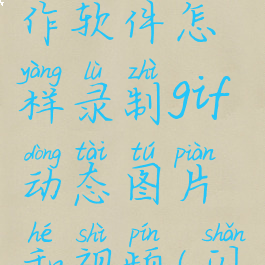 作软件怎
yàng lù zhì
样录制gif
dòng tài tú piàn
动态图片
hé shì pín shǎn
和视频(闪